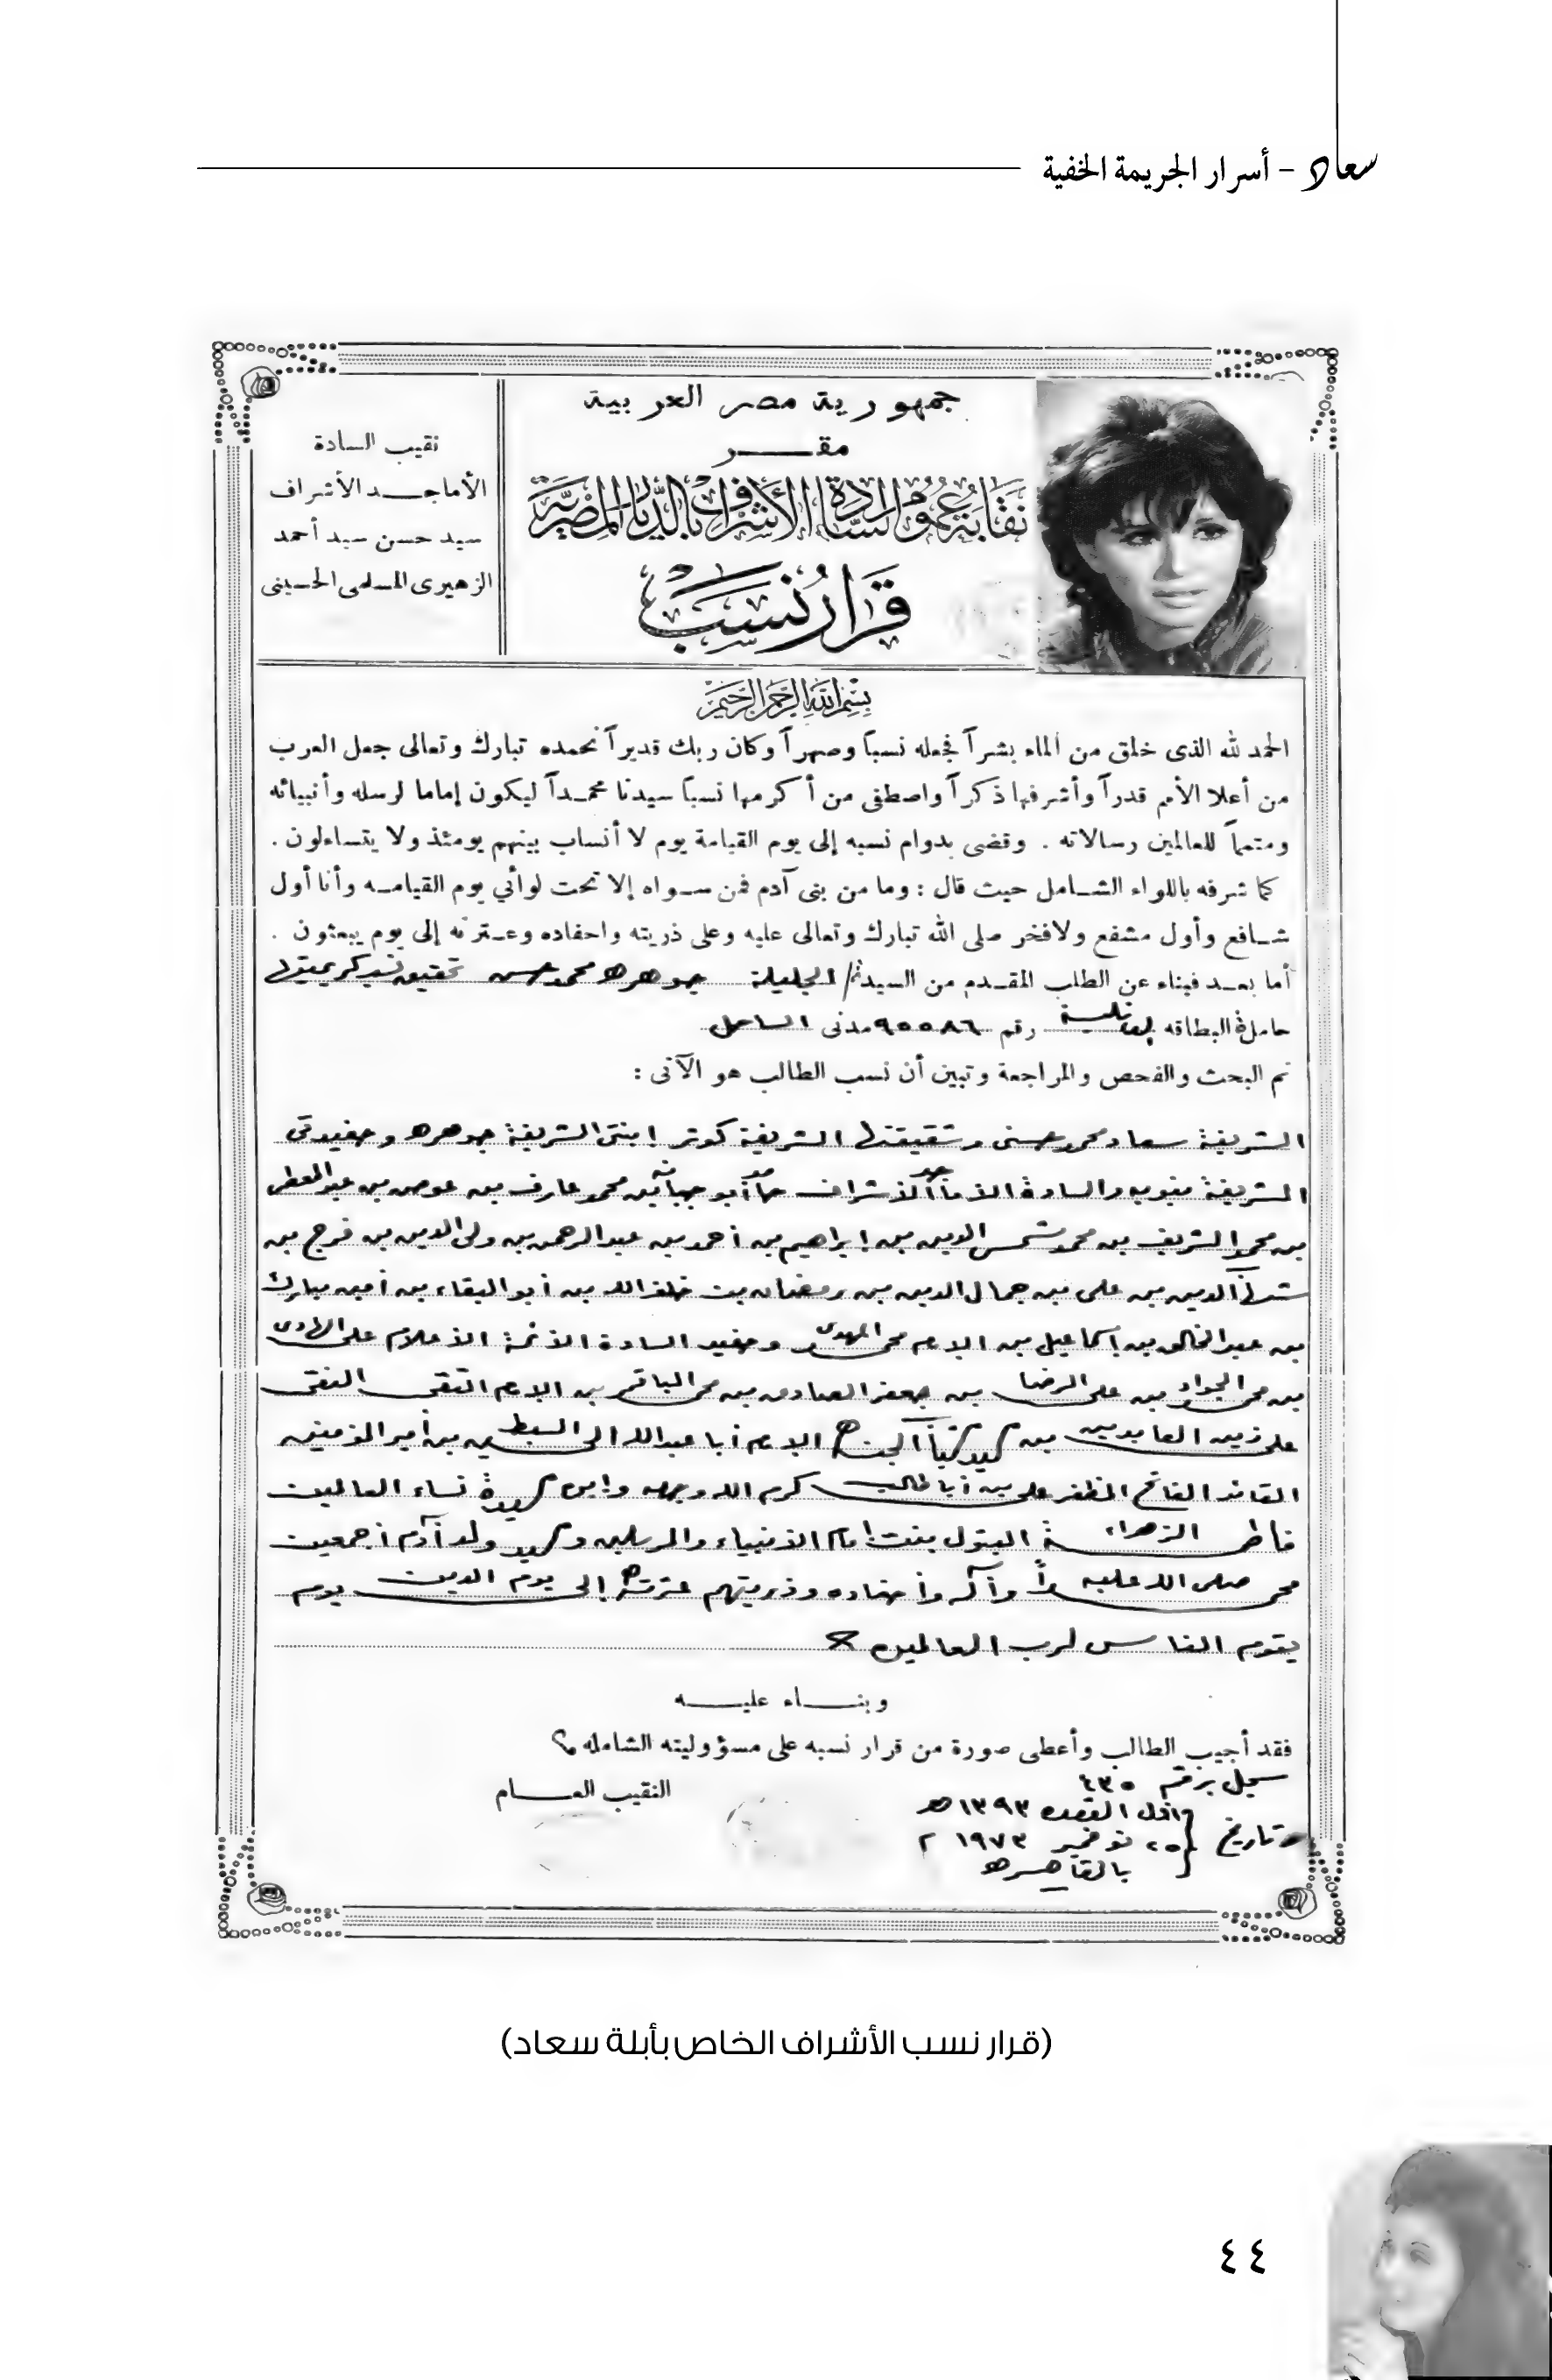 سعاد - أسرار الجريمة الخفية
جمهورية مصر العربية
مقـــر
نقابة عموم السادة الأشراف بالديار المصرية
قرار نسب
نقيب السادة
الأماجـــد الأشراف
سيد حسن سيد أحمد
الزهيرى المسلمى الحسينى
بسم الله الرحمن الرحيم
الحمد لله الذى خلق من الماء بشراً فجعله نسباً وصهراً وكان ربك قديراً نحمده تبارك وتعالى جعل العرب
من أعلا الأمم قدراً وأشرفها ذكراً واصطفى من أكرمها نسباً سيدنا محمـداً ليكون إماما لرسله وأنبيائه
ومتمماً للعالمين رسالاته . وقضى بدوام نسبه إلى يوم القيامة يوم لا أنساب بينهم يومئذ ولا يتساءلون .
كما شرفه باللواء الشـامل حيث قال : وما من بنى آدم فمن سـواه إلا تحت لوائي يوم القيامـه وأنا أول
شـافع وأول مشفع ولافخر صلى الله تبارك وتعالى عليه وعلى ذريته واحفاده وعـترته إلى يوم يبعثون .
أما بعـد فبناء عن الطلب المقـدم من السيدة/ الجليلة جوهره محمد حسن تحقيق نسب كريمتيها
حاملة البطاقه رقم ٩٥٥٨٦ مدنى الساحل
تم البحث والفحص والمراجعة وتبين أن نسب الطالب هو الآتى :
الشريفة سعاد محمد حسنى وشقيقتها الشريفة كوثر إبنتى الشريفة جوهره وحفيدتى
الشريفة والسادة الأماجد الأشراف بن محمد عارف بن عوض بن عبد المعطى
بن محمد الشريف بن محمد شمس الدين بن إبراهيم بن أحمد بن عبد الرحمن بن ولى الدين بن فرج بن
شرف الدين بن على بن جمال الدين بن رمضان بن خلف الله بن أبو البقاء بن أمين مبارك
بن عبد الخالق بن إسماعيل بن الإمام محمد المهدى وحفيد السادة الأئمة الأعلام على الهادى
بن محمد الجواد بن على الرضا بن جعفر الصادق بن محمد الباقر بن الإمام التقى النقى
على زين العابدين بن سيد شباب الجنة الإمام أبا عبد الله الحسين السبط بن أمير المؤمنين
القائد الفاتح المظفر على بن أبا طالب كرم الله وجهه وابن سيدة نساء العالمين
فاطمة الزهراء البتول بنت إمام الأنبياء والمرسلين وسيد ولد آدم أجمعين
محمداً صلى الله عليه وآله وأحفاده وذريتهم عترته إلى يوم الدين يوم
يقوم الناس لرب العالمين
وبنـــاء عليـــه
فقد أجيب الطالب وأعطى صورة من قرار نسبه على مسؤوليته الشامله
سجل برقم ٤٣٥
النقيب العـــام
تاريخ
القعده ١٣٩٣ هـ
٢٥ نوفمبر ١٩٧٣ م
بالقاهره
(قرار نسب الأشراف الخاص بأبلة سعاد)
٤٤